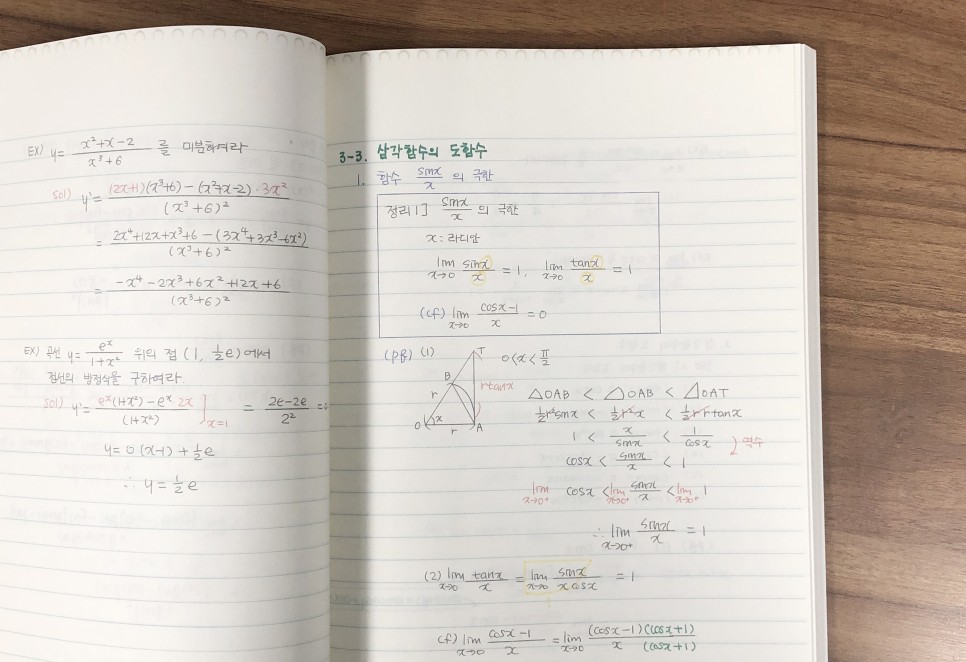 EX) y = (x²+x-2)/(x³+6) 를 미분하여라
sol) y' = ((2x+1)(x³+6) - (x²+x-2)·3x²)/(x³+6)²
= (2x⁴+12x+x³+6-(3x⁴+3x³-6x²))/(x³+6)²
= (-x⁴-2x³+6x²+12x+6)/(x³+6)²
EX) 곡선 y = eˣ/(1+x²) 위의 점 (1, ½e)에서
접선의 방정식을 구하여라.
sol) y' = (eˣ(1+x²)-eˣ 2x)/(1+x²) ]x=1 = (2e-2e)/2² =
y = 0(x-1) + ½e
∴ y = ½e
3-3. 삼각함수의 도함수
1. 함수 sinx/x 의 극한
정리1] sinx/x 의 극한
x : 라디안
lim x→0 sinx/x = 1, lim x→0 tanx/x = 1
(cf) lim x→0 (cosx-1)/x = 0
(pf) (1) 0<x<π/2
T
B
r
rtanx
O x r A
△OAB < △OAB < △OAT
½r²sinx < ½r²x < ½r·rtanx
1 < x/sinx < 1/cosx
역수
cosx < sinx/x < 1
lim x→0⁺ cosx < lim x→0⁺ sinx/x < lim x→0⁺ 1
∴ lim x→0⁺ sinx/x = 1
(2) lim x→0 tanx/x = lim x→0 sinx/(x cosx) = 1
(cf) lim x→0 (cosx-1)/x = lim x→0 (cosx-1)(cosx+1)/(x (cosx+1))